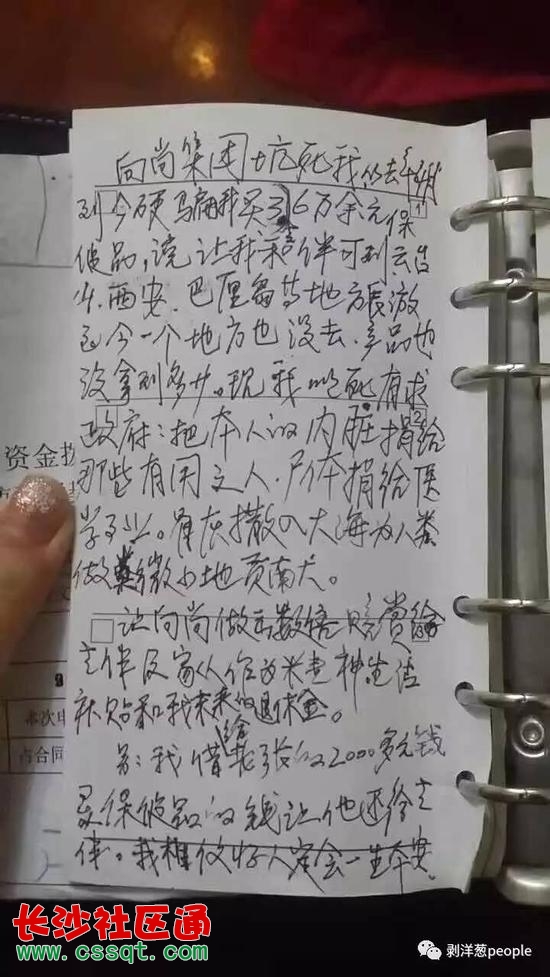 向尚集团坑死我从去年明
到今硬骗我买了6万余元保
健品,说让我和老伴可到云台
山.西安.巴厘岛等地方旅游
至今一个地方也没去.产品也
没拿到多少.现我以死有求
政府:把本人的内脏捐给
那些有用之人.尸体捐给医
学事业。骨灰撒入大海为人类
做微小地贡献。
让向尚做出数倍赔赏给
老伴及家人作为精神生活
补贴和我未来的退休金。
另:我借给张的2000多元钱
买保健品的钱让他还给老
伴。我相信好人定会一生平安
资金
本次申
占合同
长沙社区通
www.cssqt.com
剥洋葱people